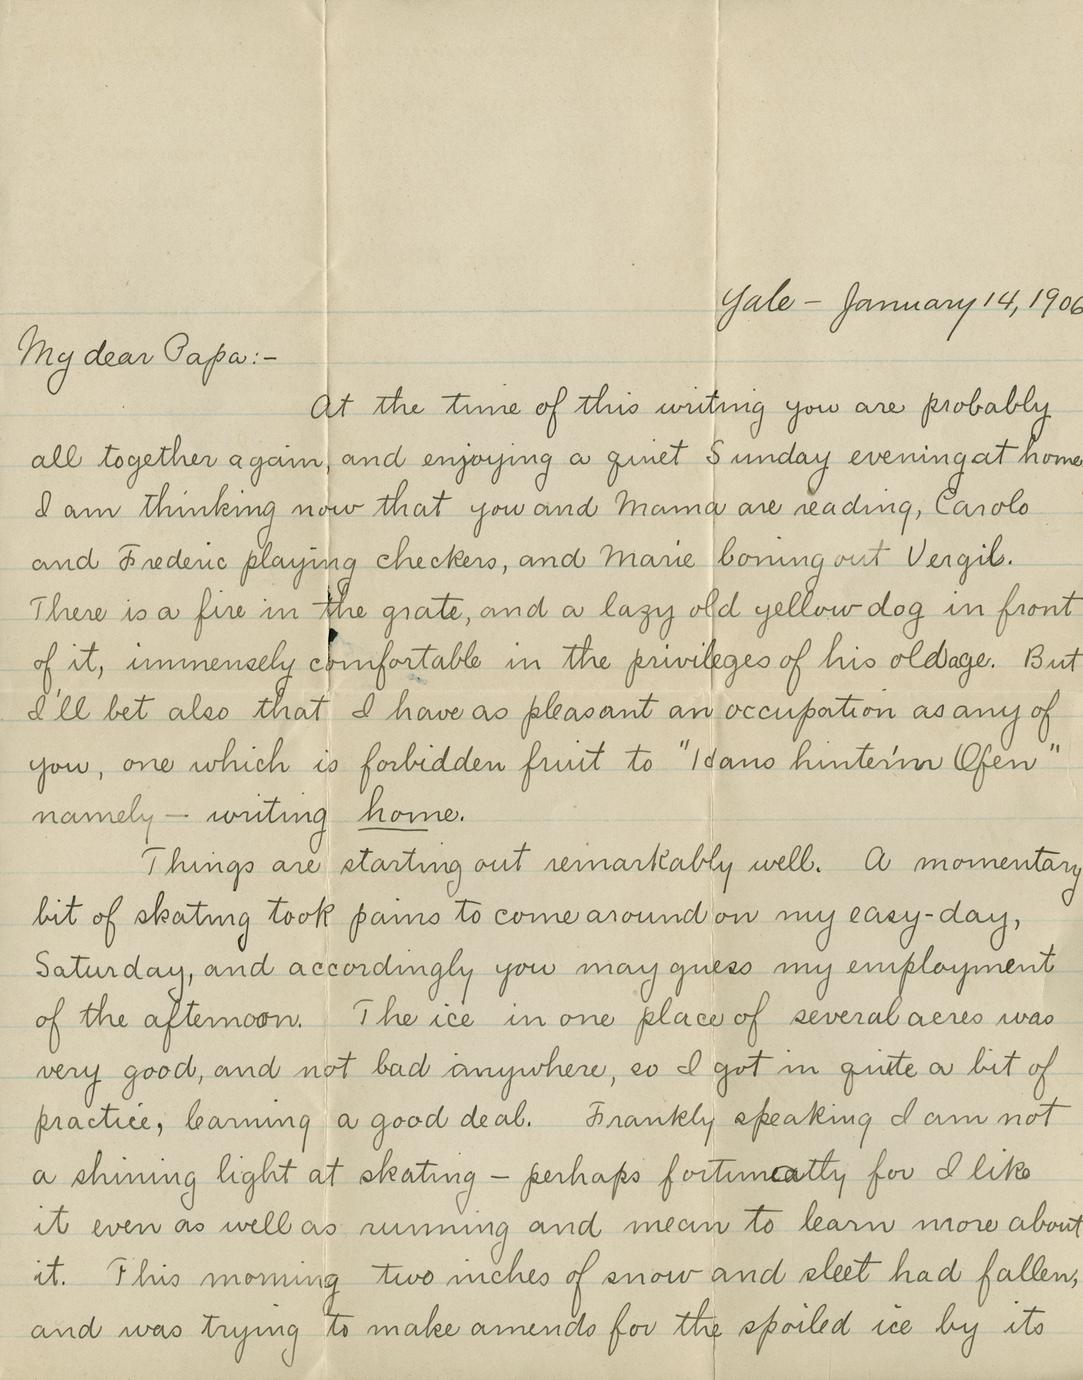 Yale – January 14, 1906
My dear Papa:–
At the time of this writing you are probably
all together again, and enjoying a quiet Sunday evening at home
I am thinking now that you and Mama are reading, Carolo
and Frederic playing checkers, and Marie boning out Vergil.
There is a fire in the grate, and a lazy old yellow dog in front
of it, immensely comfortable in the privileges of his old age. But
I'll bet also that I have as pleasant an occupation as any of
you, one which is forbidden fruit to "Hans hinter'm Ofen"
namely – writing home.
Things are starting out remarkably well. A momentary
bit of skating took pains to come around on my easy-day,
Saturday, and accordingly you may guess my employment
of the afternoon. The ice in one place of several acres was
very good, and not bad anywhere, so I got in quite a bit of
practice, learning a good deal. Frankly speaking I am not
a shining light at skating – perhaps fortunatly for I like
it even as well as running and mean to learn more about
it. This morning two inches of snow and sleet had fallen,
and was trying to make amends for the spoiled ice by its